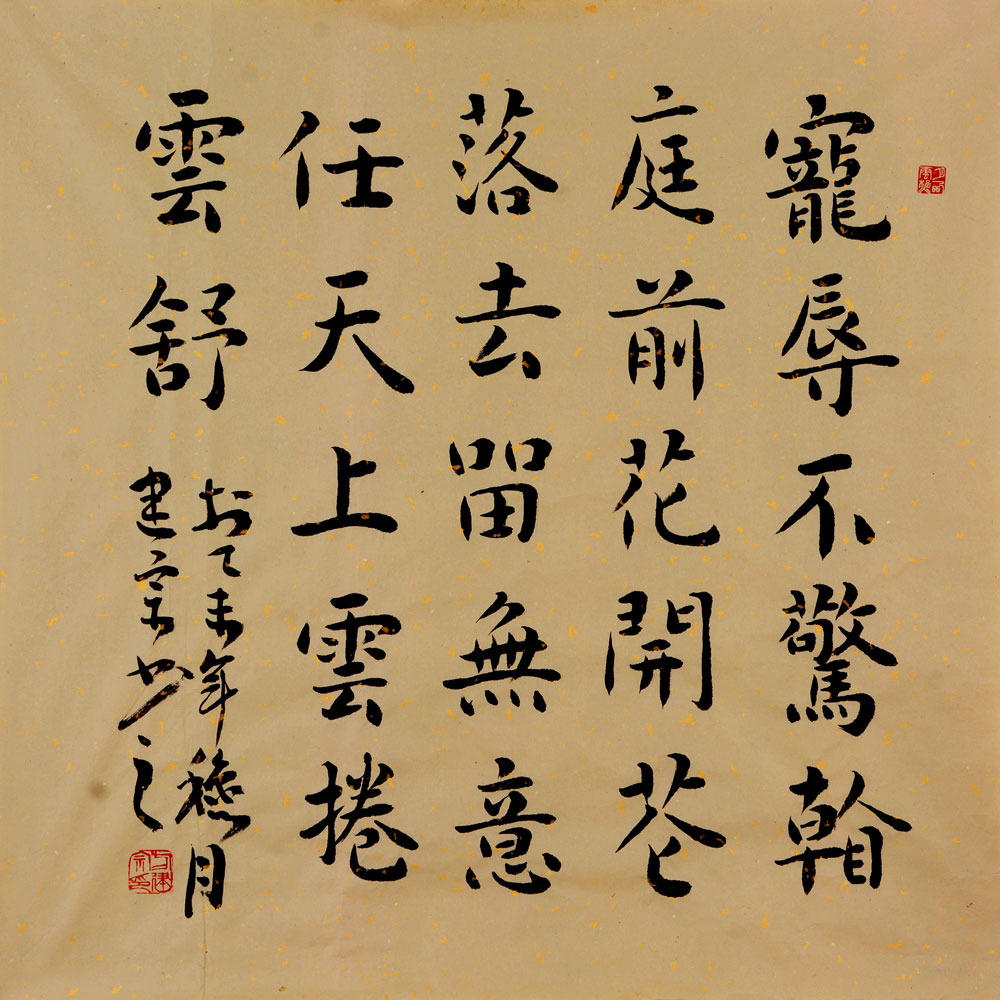 寵辱不驚看
庭前花開花
落去留無意
任天上雲捲
雲舒
於乙未年月
建宗书之